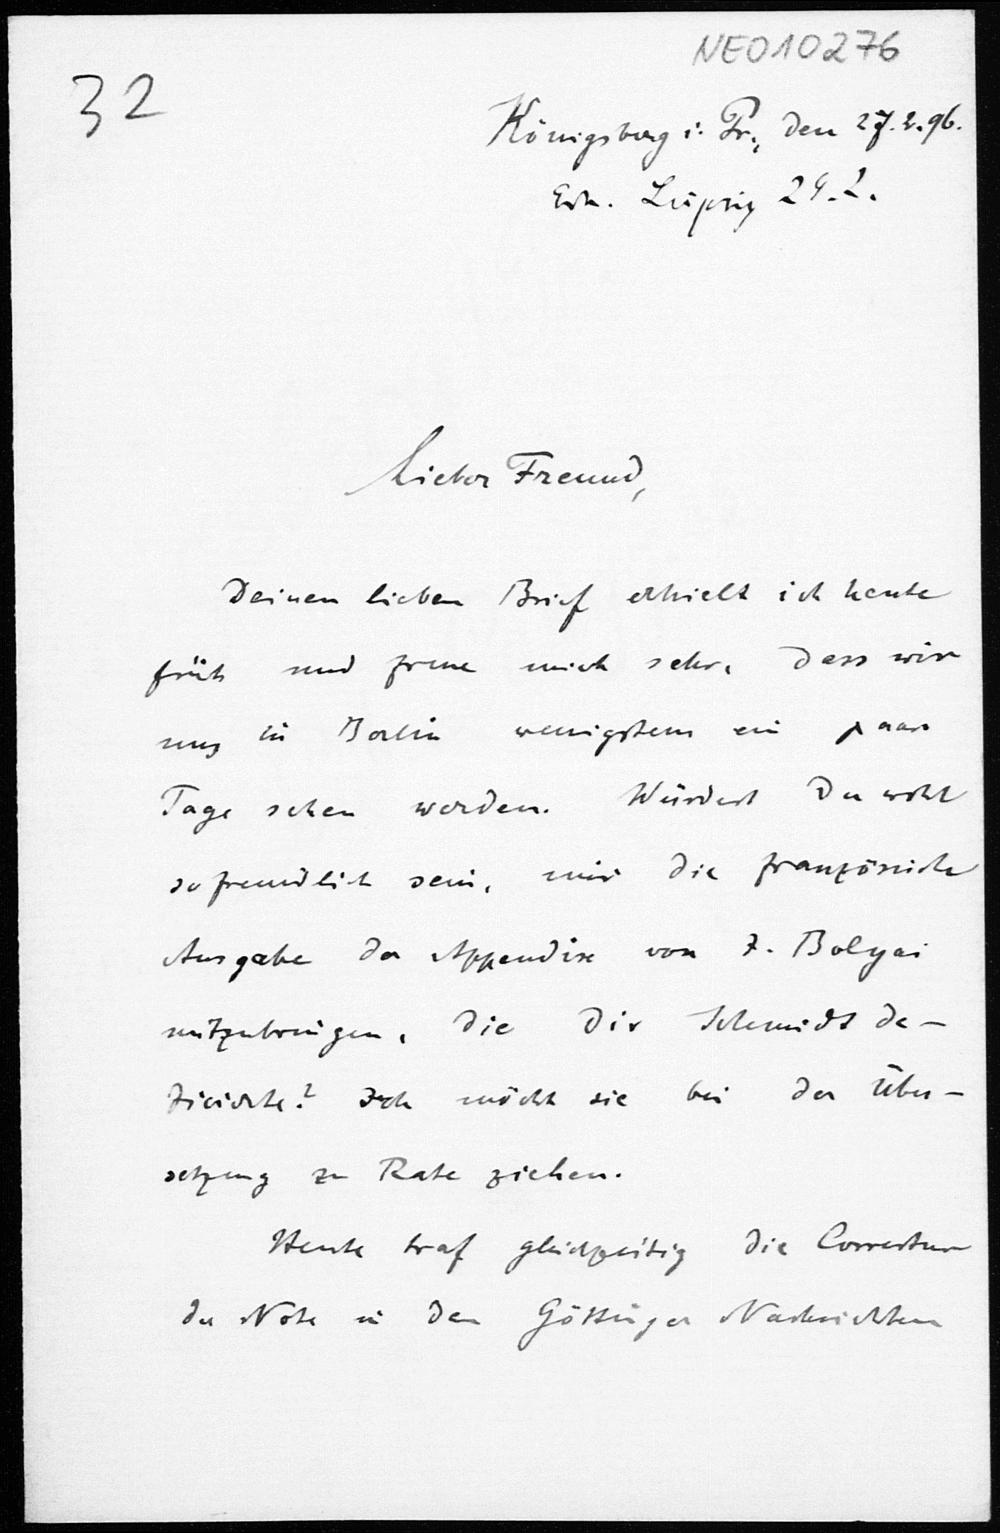 NE010276
32
Königsberg i. Pr., den 27.2.96.
Erh. Leipzig 29.2.
Lieber Freund,
Deinen lieben Brief erhielt ich heute
früh und freue mich sehr, dass wir
uns in Berlin wenigstens ein paar
Tage sehen werden. Würdest Du wohl
so freundlich sein, mir die französische
Ausgabe der Appendix von J. Bolyai
mitzubringen, die Dir Schmidt de-
dicierte? Ich möchte sie bei der Über-
setzung zu Rate ziehen.
Heute traf gleichzeitig die Correctur
der Note in den Göttinger Nachrichten